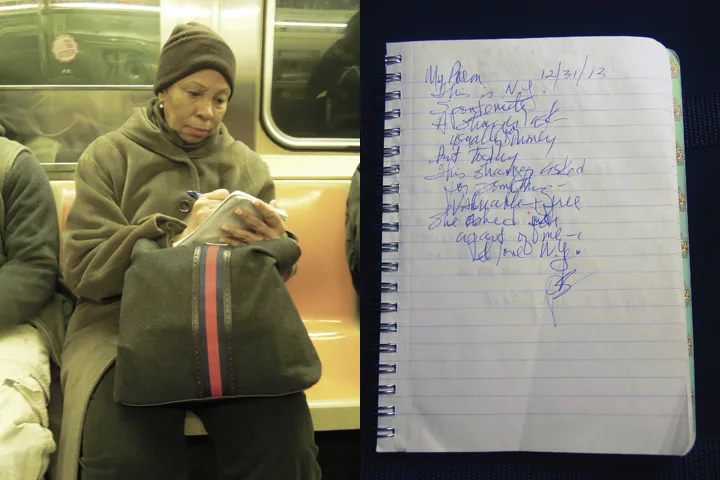 My Poem 12/31/13
This is N.Y.
Scontemely
A (Strangers) ask
usually money
but today
This stranger asked
for something -
Valuable + free
She asked
apart of me -
I love N.Y.